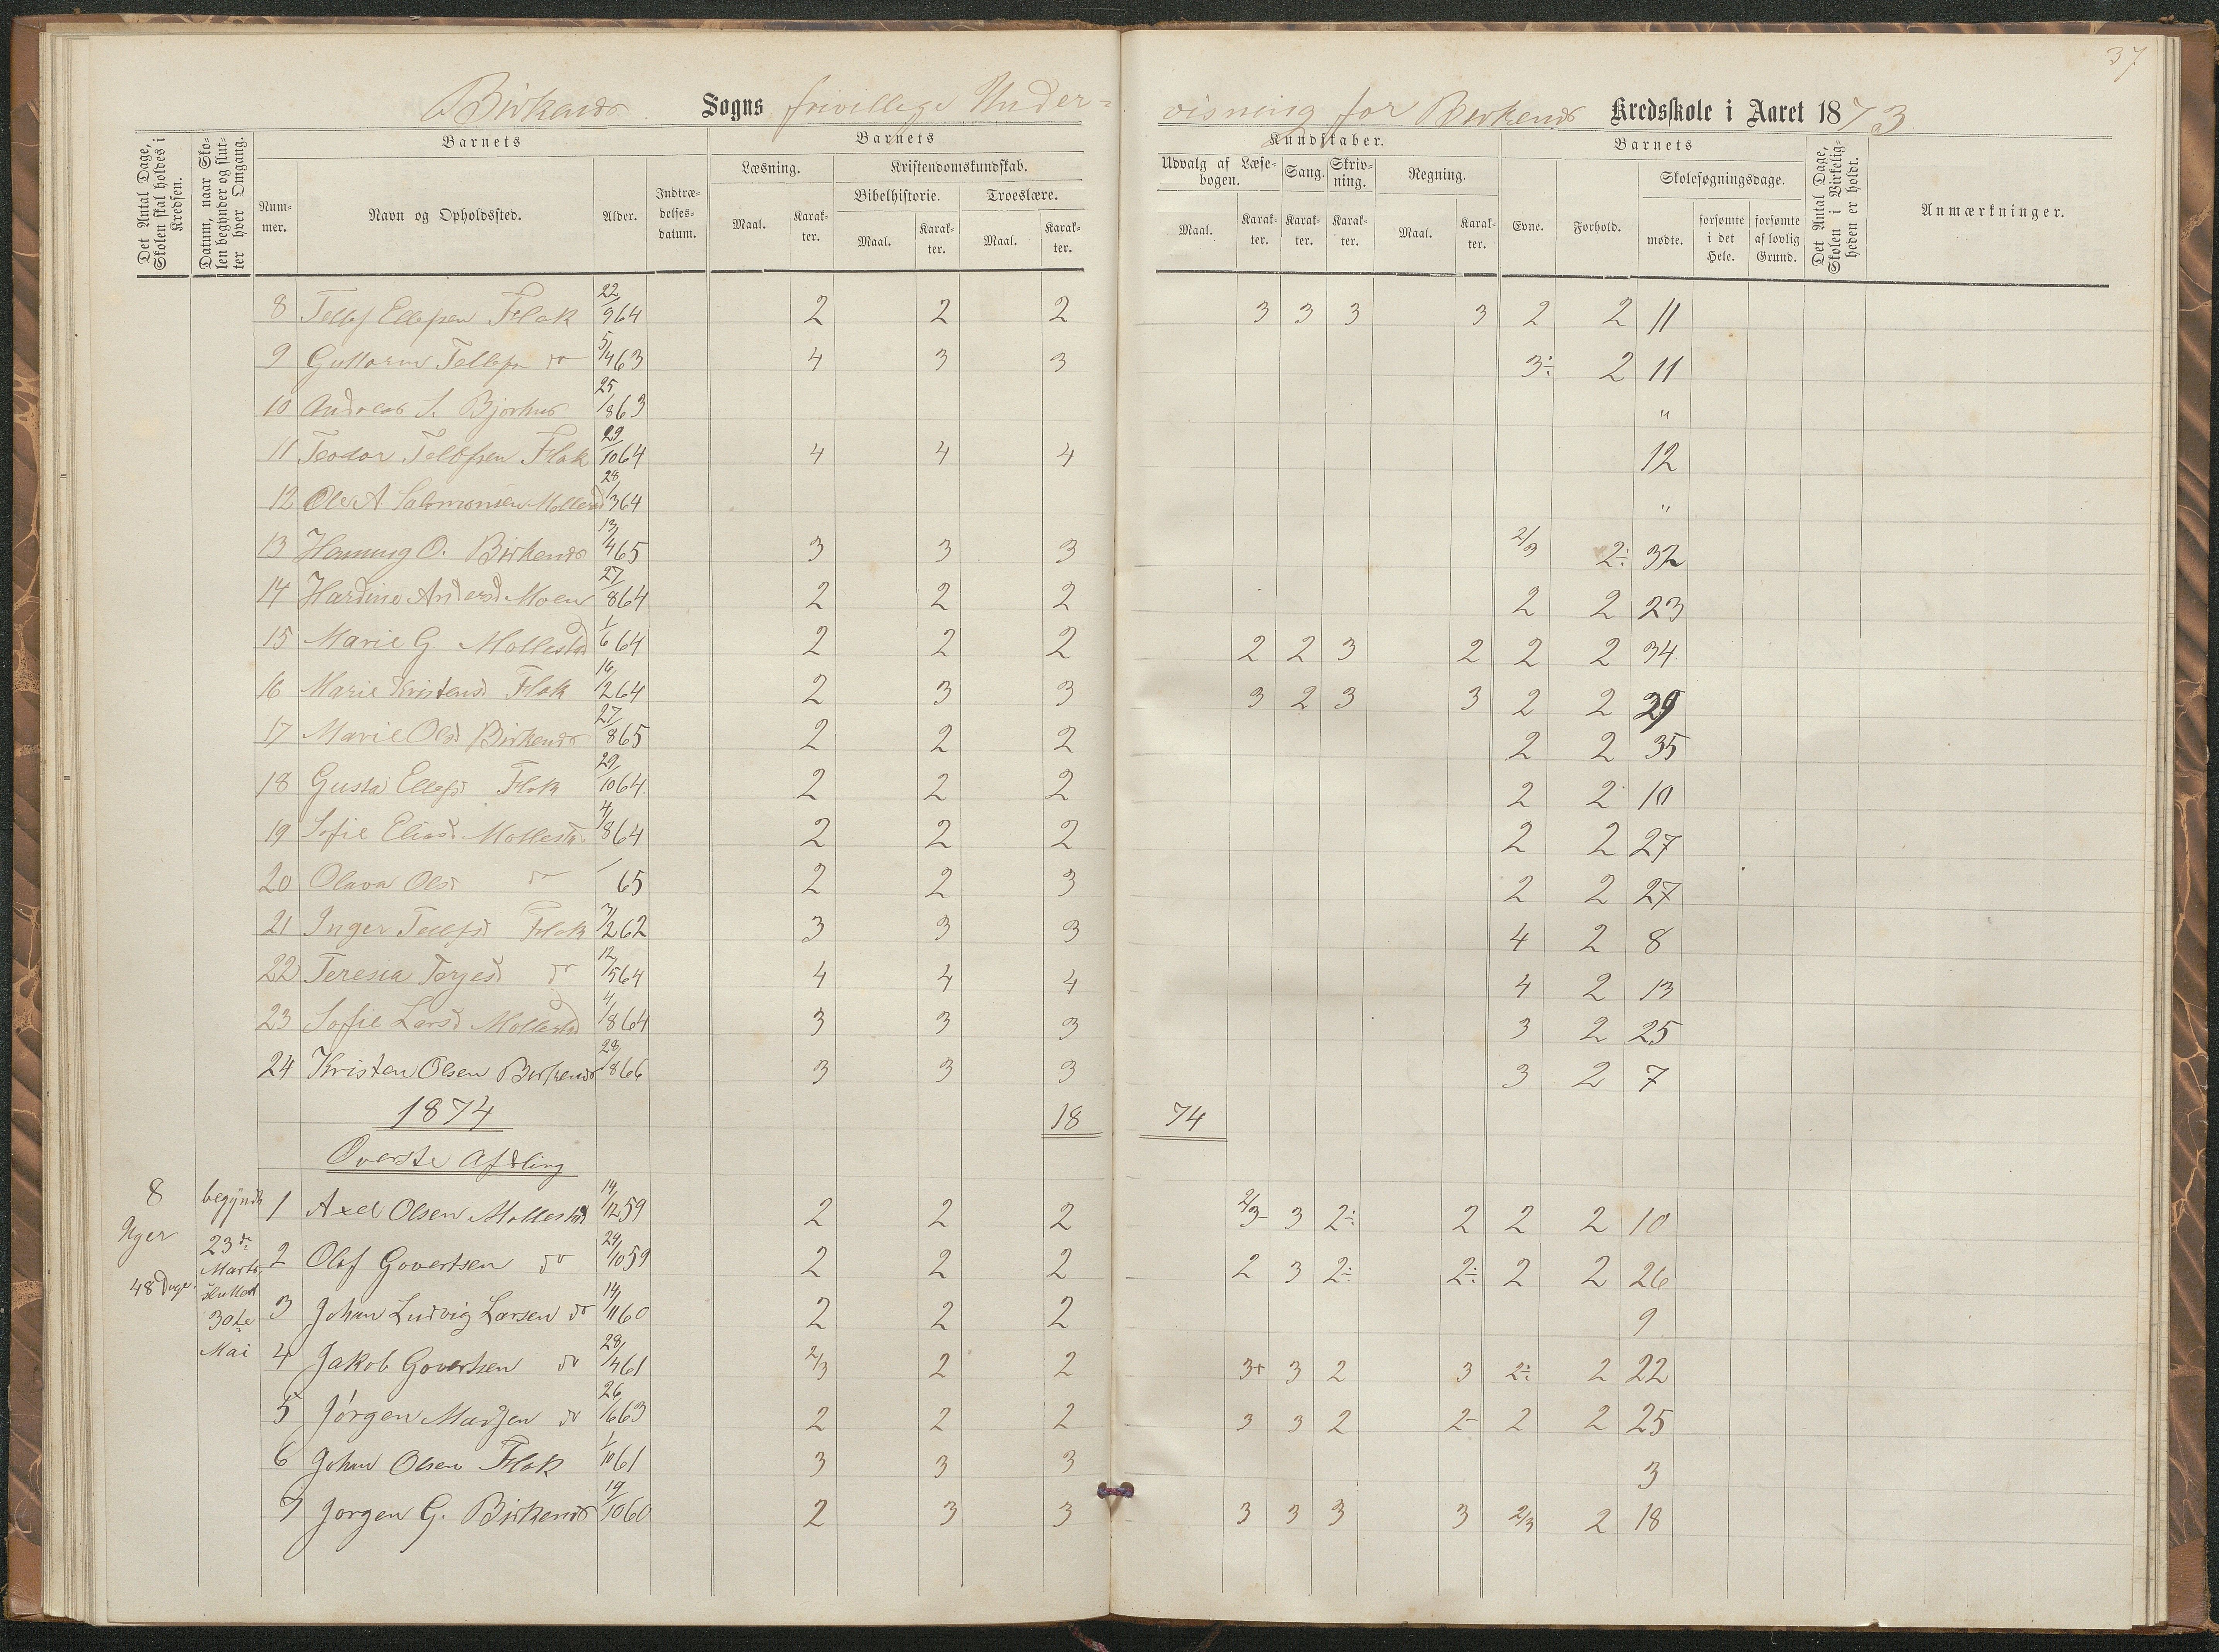 37
Birkenæs Sogns frivillige Under= visning for Birkenæs Kredsskole i Aaret 1873
Det Antal Dage, Skolen skal holdes i Kredsen.
Datum, naar Skolen begynder og slutter hver Omgang.
Barnets
Nummer.
Navn og Opholdssted.
Alder.
Indtrædelsesdatum.
Barnets
Kundskaber.
Læsning.
Maal.
Karakter.
Kristendomskundskab.
Bibelhistorie.
Maal.
Karakter.
Troeslære.
Maal.
Karakter.
Udvalg af Læsebogen.
Maal.
Karakter.
Sang.
Karakter.
Skrivning.
Karakter.
Regning.
Maal.
Karakter.
Barnets
Evne.
Forhold.
Skolesøgningsdage.
mødte.
forsømte i det Hele.
forsømte af lovlig Grund.
Det Antal Dage, Skolen i Virkeligheden er holdt.
Anmærkninger.
8 Tellef Ellefsen Flak 22/9 64 2 2 2 3 3 3 3 2 2 11
9 Guttorm Tellefsn do 5/4 63 4 3 3 3÷ 2 11
10 Andreas S. Bjorhus 25/8 63 "
11 Teodor Tellefsen Flak 29/10 64 4 4 4 12
12 Ole A Salomonsen Mollesd 28/3 64 "
13 Henning O. Birkenæs 13/4 65 3 3 3 2/3 2÷ 32
14 Hardine Andersd Moen 27/8 64 2 2 2 2 2 23
15 Marie G. Mollestad 1/6 64 2 2 2 2 2 3 2 2 2 34
16 Marie Kristensd Flak 16/2 64 2 3 3 3 2 3 3 2 2 39
17 Marie Olsd Birkenæs 27/8 65 2 2 2 2 2 35
18 Gusta Ellefsd Flak 29/10 64 2 2 2 2 2 10
19 Sofie Eliasd Mollestad 4/8 64 2 2 2 2 2 27
20 Olava Olsd do 65 2 2 3 2 2 27
21 Inger Tellefsd Flak 7/2 62 3 3 3 4 2 8
22 Teresia Torjesd do 12/5 64 4 4 4 4 2 13
23 Sofie Larsd Mollestad 4/8 64 3 3 3 3 2 25
24 Kristen Olsen Birkenæs 28/8 66 3 3 3 3 2 7
1874 18 74
Overste Afdling
8 Uger 48 Dage
begyndte 23de Marts sluttede 30te Mai
1 Axel Olsen Mollestad 14/12 59 2 2 2 2/3 3 2÷ 2 2 2 10
2 Olaf Govertsen do 24/10 59 2 2 2 2 3 2÷ 2÷ 2 2 26
3 Johan Ludvig Larsen do 14/11 60 2 2 2 9
4 Jakob Govertsen do 28/4 61 2/3 2 2 3+ 3 2 3 2÷ 2 22
5 Jörgen Madsen do 26/6 63 2 2 2 3 3 2 2- 2 2 25
6 Johan Olsen Flak 1/10 61 3 3 3 3
7 Jorgen G. Birkenæs 19/10 60 2 3 3 3 3 3 3 2/3 2 18